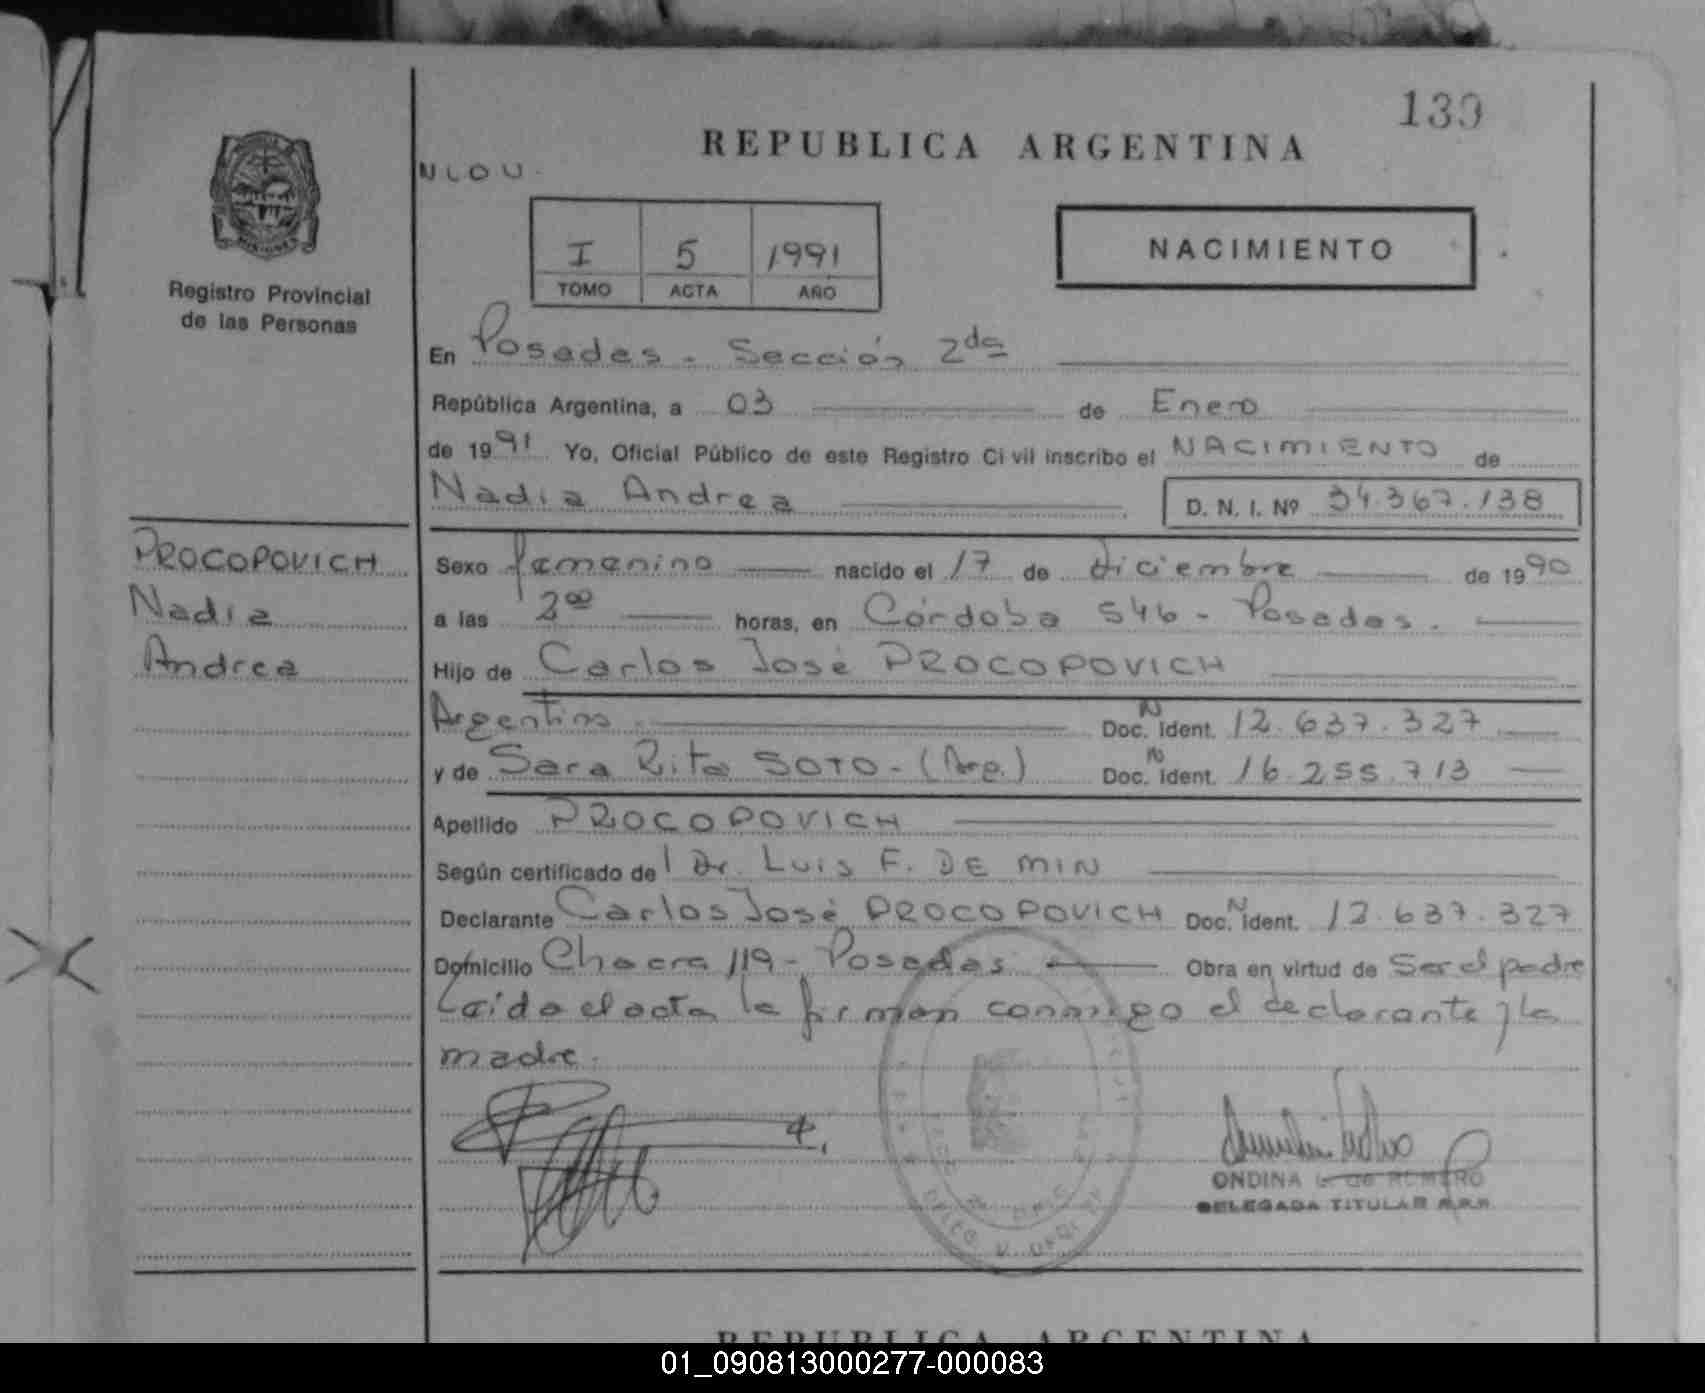 139
REPUBLICA ARGENTINA
NLOU.
I 5 1991
TOMO ACTA AÑO
NACIMIENTO
MISIONES
Registro Provincial
de las Personas
En Posadas - Sección 2da
República Argentina, a 03 de Enero
de 1991 Yo, Oficial Público de este Registro Civil inscribo el NACIMIENTO de
Nadia Andrea D. N. I. Nº 34.367.138
PROCOPOVICH
Nadia
Andrea
Sexo femenino nacido el 17 de diciembre de 1990
a las 200 horas, en Córdoba 546 - Posadas.
Hijo de Carlos José PROCOPOVICH
Argentino. Doc. N Ident. 12.637.327
y de Sara Rita SOTO - (Arg.) Doc. N Ident. 16.255.713
Apellido PROCOPOVICH
Según certificado del Dr. Luis F. DE MIN
Declarante Carlos José PROCOPOVICH Doc. N Ident. 12.637.327
Domicilio Chacra 119 - Posadas Obra en virtud de Ser el padre
Leída el acta la firman conmigo el declarante y la
madre.
ONDINA L. de ROMERO
DELEGADA TITULAR R.P.P.
REPUBLICA ARGENTINA
01_090813000277-000083